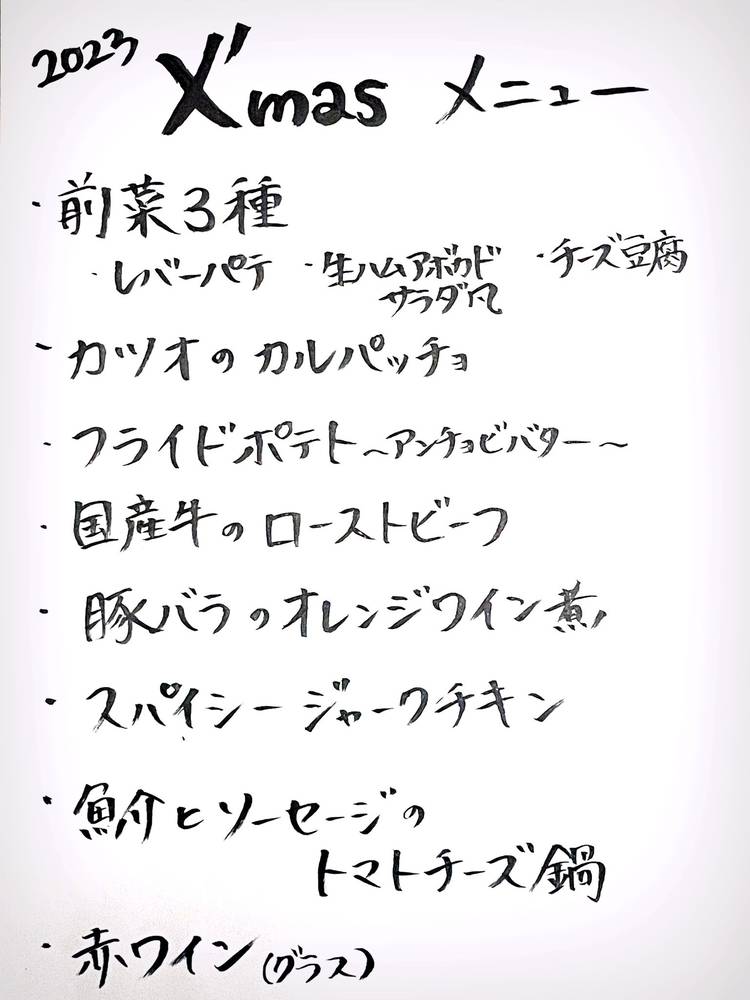 2023 X'mas メニュー
・前菜3種
・レバーパテ ・生ハムアボカド ・チーズ豆腐
サラダ風
・カツオのカルパッチョ
・フライドポテト～アンチョビバター～
・国産牛のローストビーフ
・豚バラのオレンジワイン煮
・スパイシージャークチキン
・魚介とソーセージの
トマトチーズ鍋
・赤ワイン(グラス)